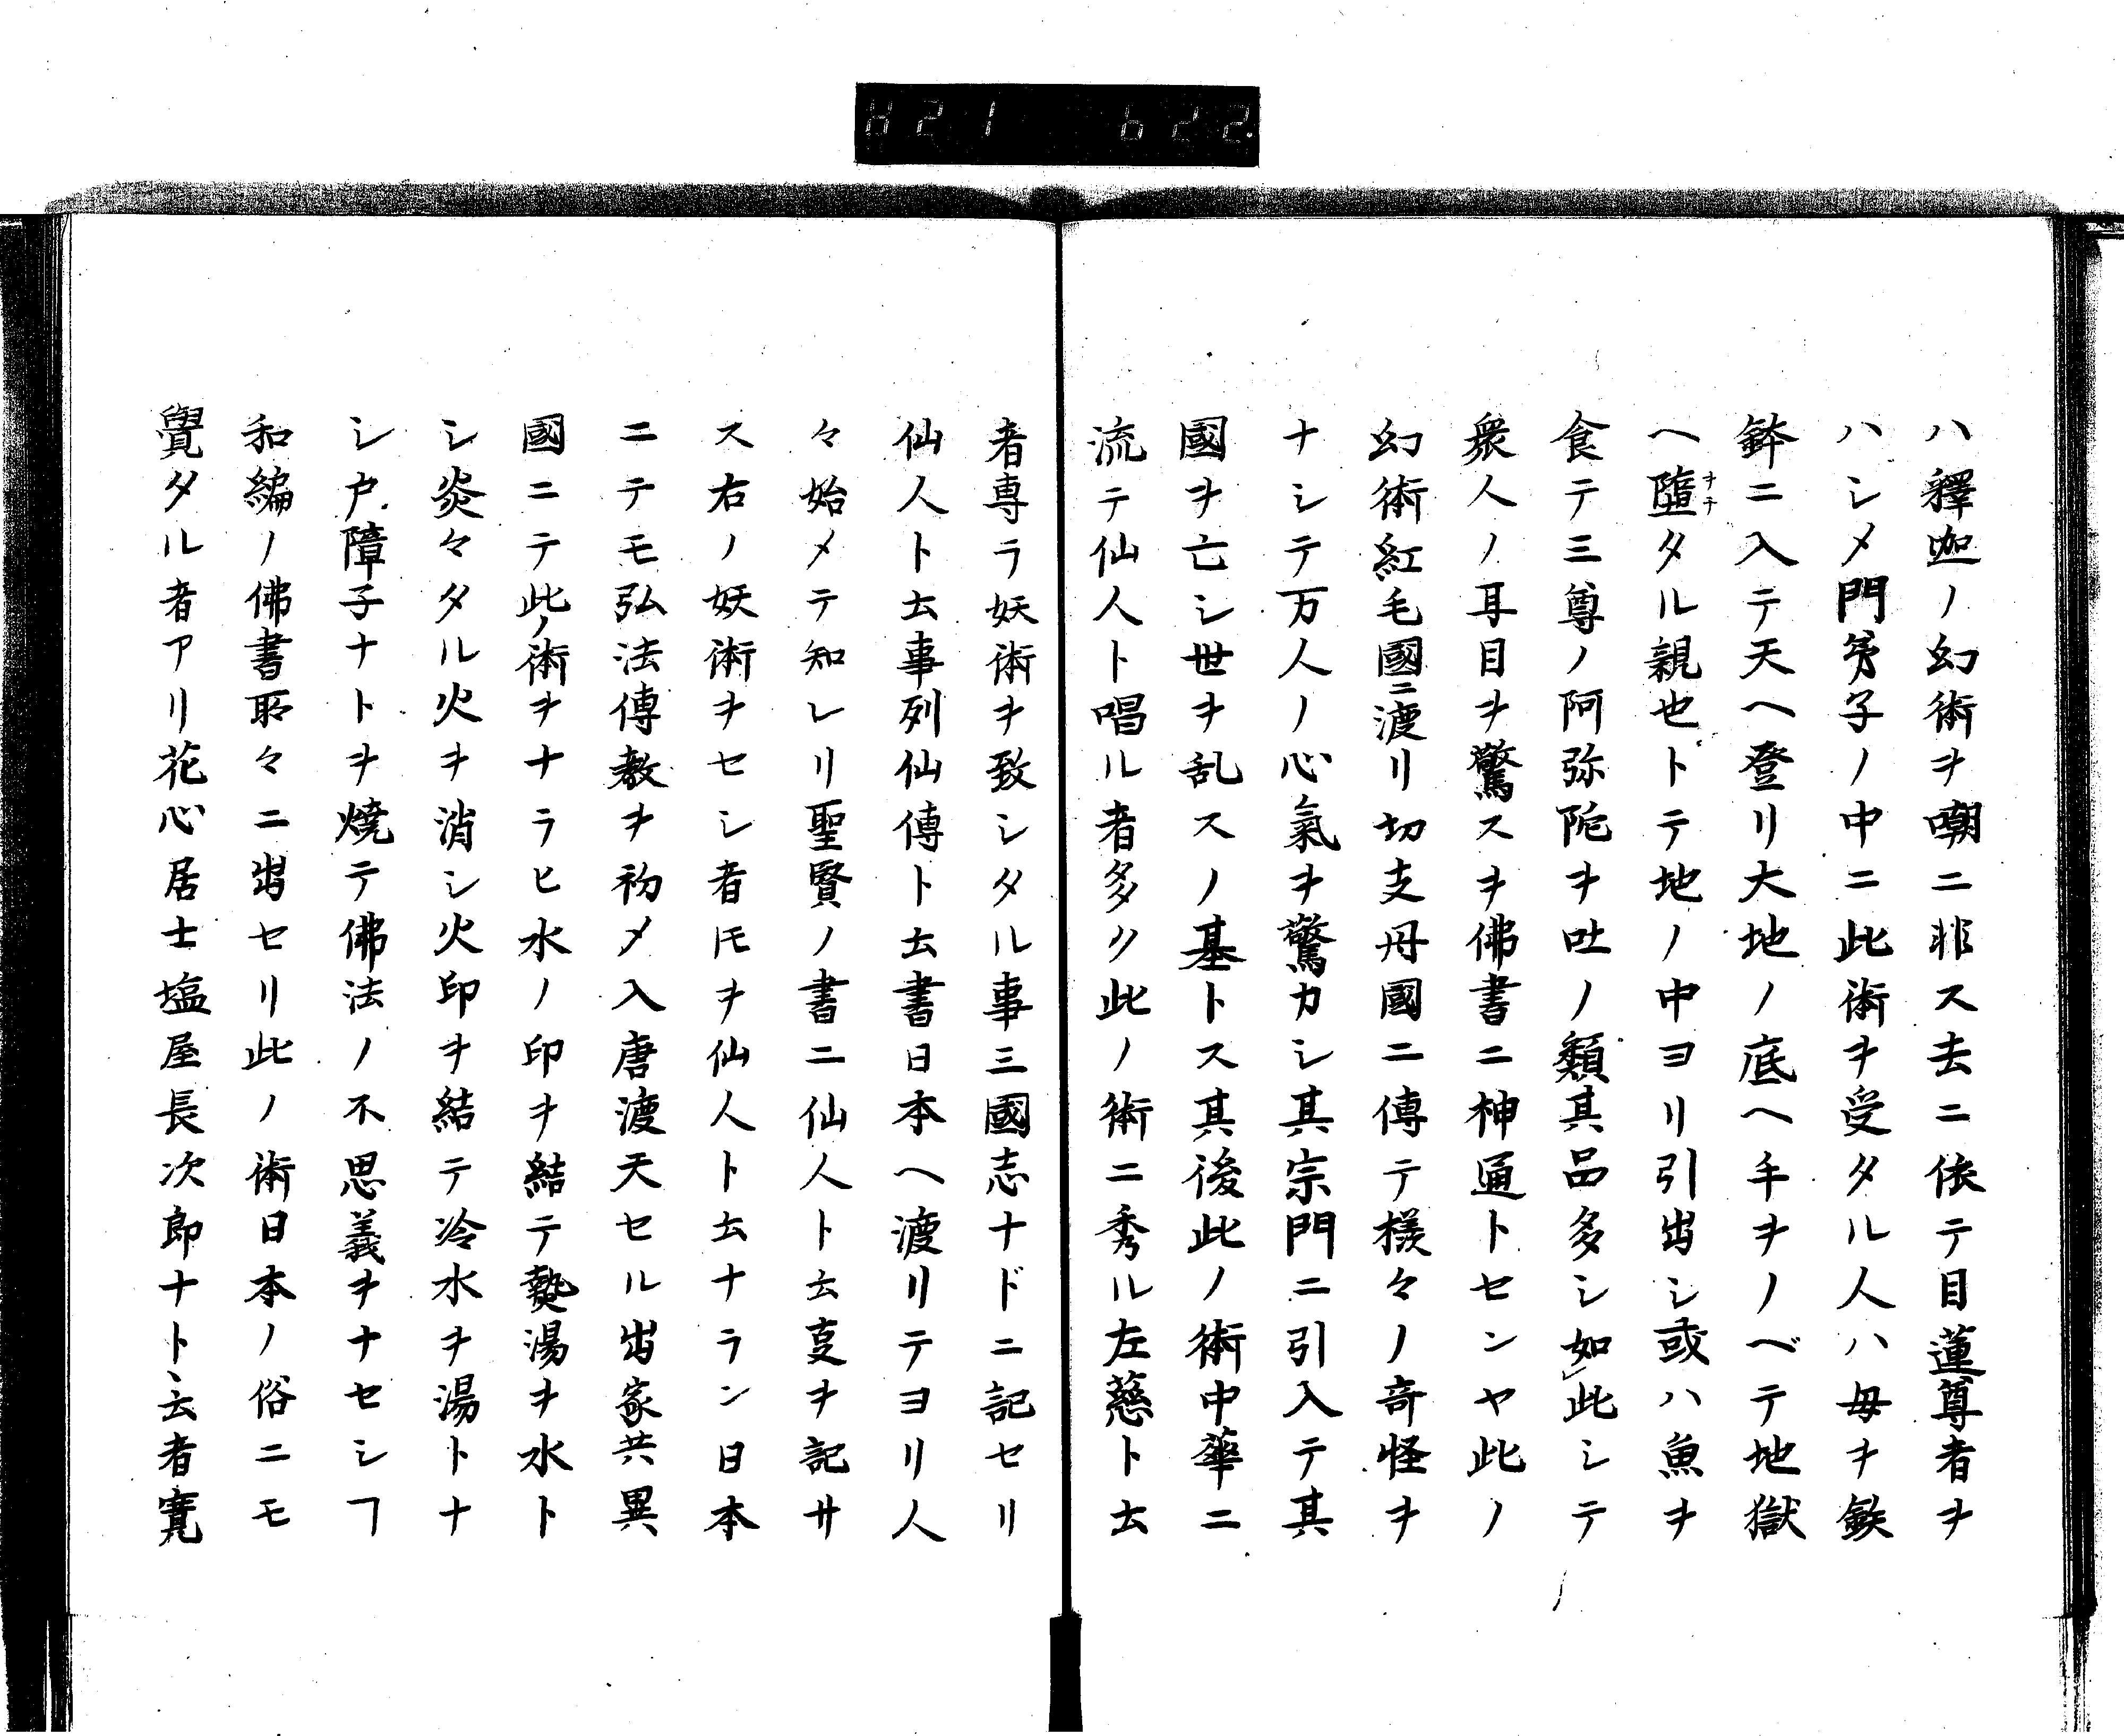 H21 622.
ハ釋迦ノ幻術ヲ嘲ニ非ス去ニ依テ目蓮尊者ヲ
ハシメ門弟子ノ中ニ此術ヲ受タル人ハ毎ヲ鉄
鉢ニ入テ天ヘ登リ大地ノ底ヘ手ヲノベテ地獄
ヘ墮タル親也トテ地ノ中ヨリ引出シ或ハ魚ヲ
ヲチ
食テ三尊ノ阿弥陀ヲ吐ノ類其品多シ如レ此シテ
衆人ノ耳目ヲ驚スヲ佛書ニ神通トセンヤ此ノ
幻術紅毛國ニ渡リ切支丹國ニ傳テ様々ノ奇怪ヲ
ナシテ万人ノ心氣ヲ驚カシ其宗門ニ引入テ其
國ヲ亡シ世ヲ乱スノ基トス其後此ノ術中華ニ
流テ仙人ト唱ル者多ク此ノ術ニ秀ル左慈ト云
者専ラ妖術ヲ致シタル事三國志ナドニ記セリ
仙人ト云事列仙傳ト云書日本ヘ渡リテヨリ人
々始メテ知レリ聖賢ノ書ニ仙人ト云叓ヲ記サ
ス右ノ妖術ヲセシ者圧ヲ仙人ト云ナラン日本
ニテモ弘法傳教ヲ初メ入唐渡天セル出家共異
國ニテ此ノ術ヲナラヒ水ノ印ヲ結テ熱湯ヲ水ト
シ炎々タル火ヲ消シ火印ヲ結テ冷水ヲ湯トナ
シ戸障子ナトヲ燒テ佛法ノ不思義ヲナセシヿ
和編ノ佛書耶々ニ出セリ此ノ術日本ノ俗ニモ
覺タル者アリ花心居士塩屋長次郎ナト云者寛